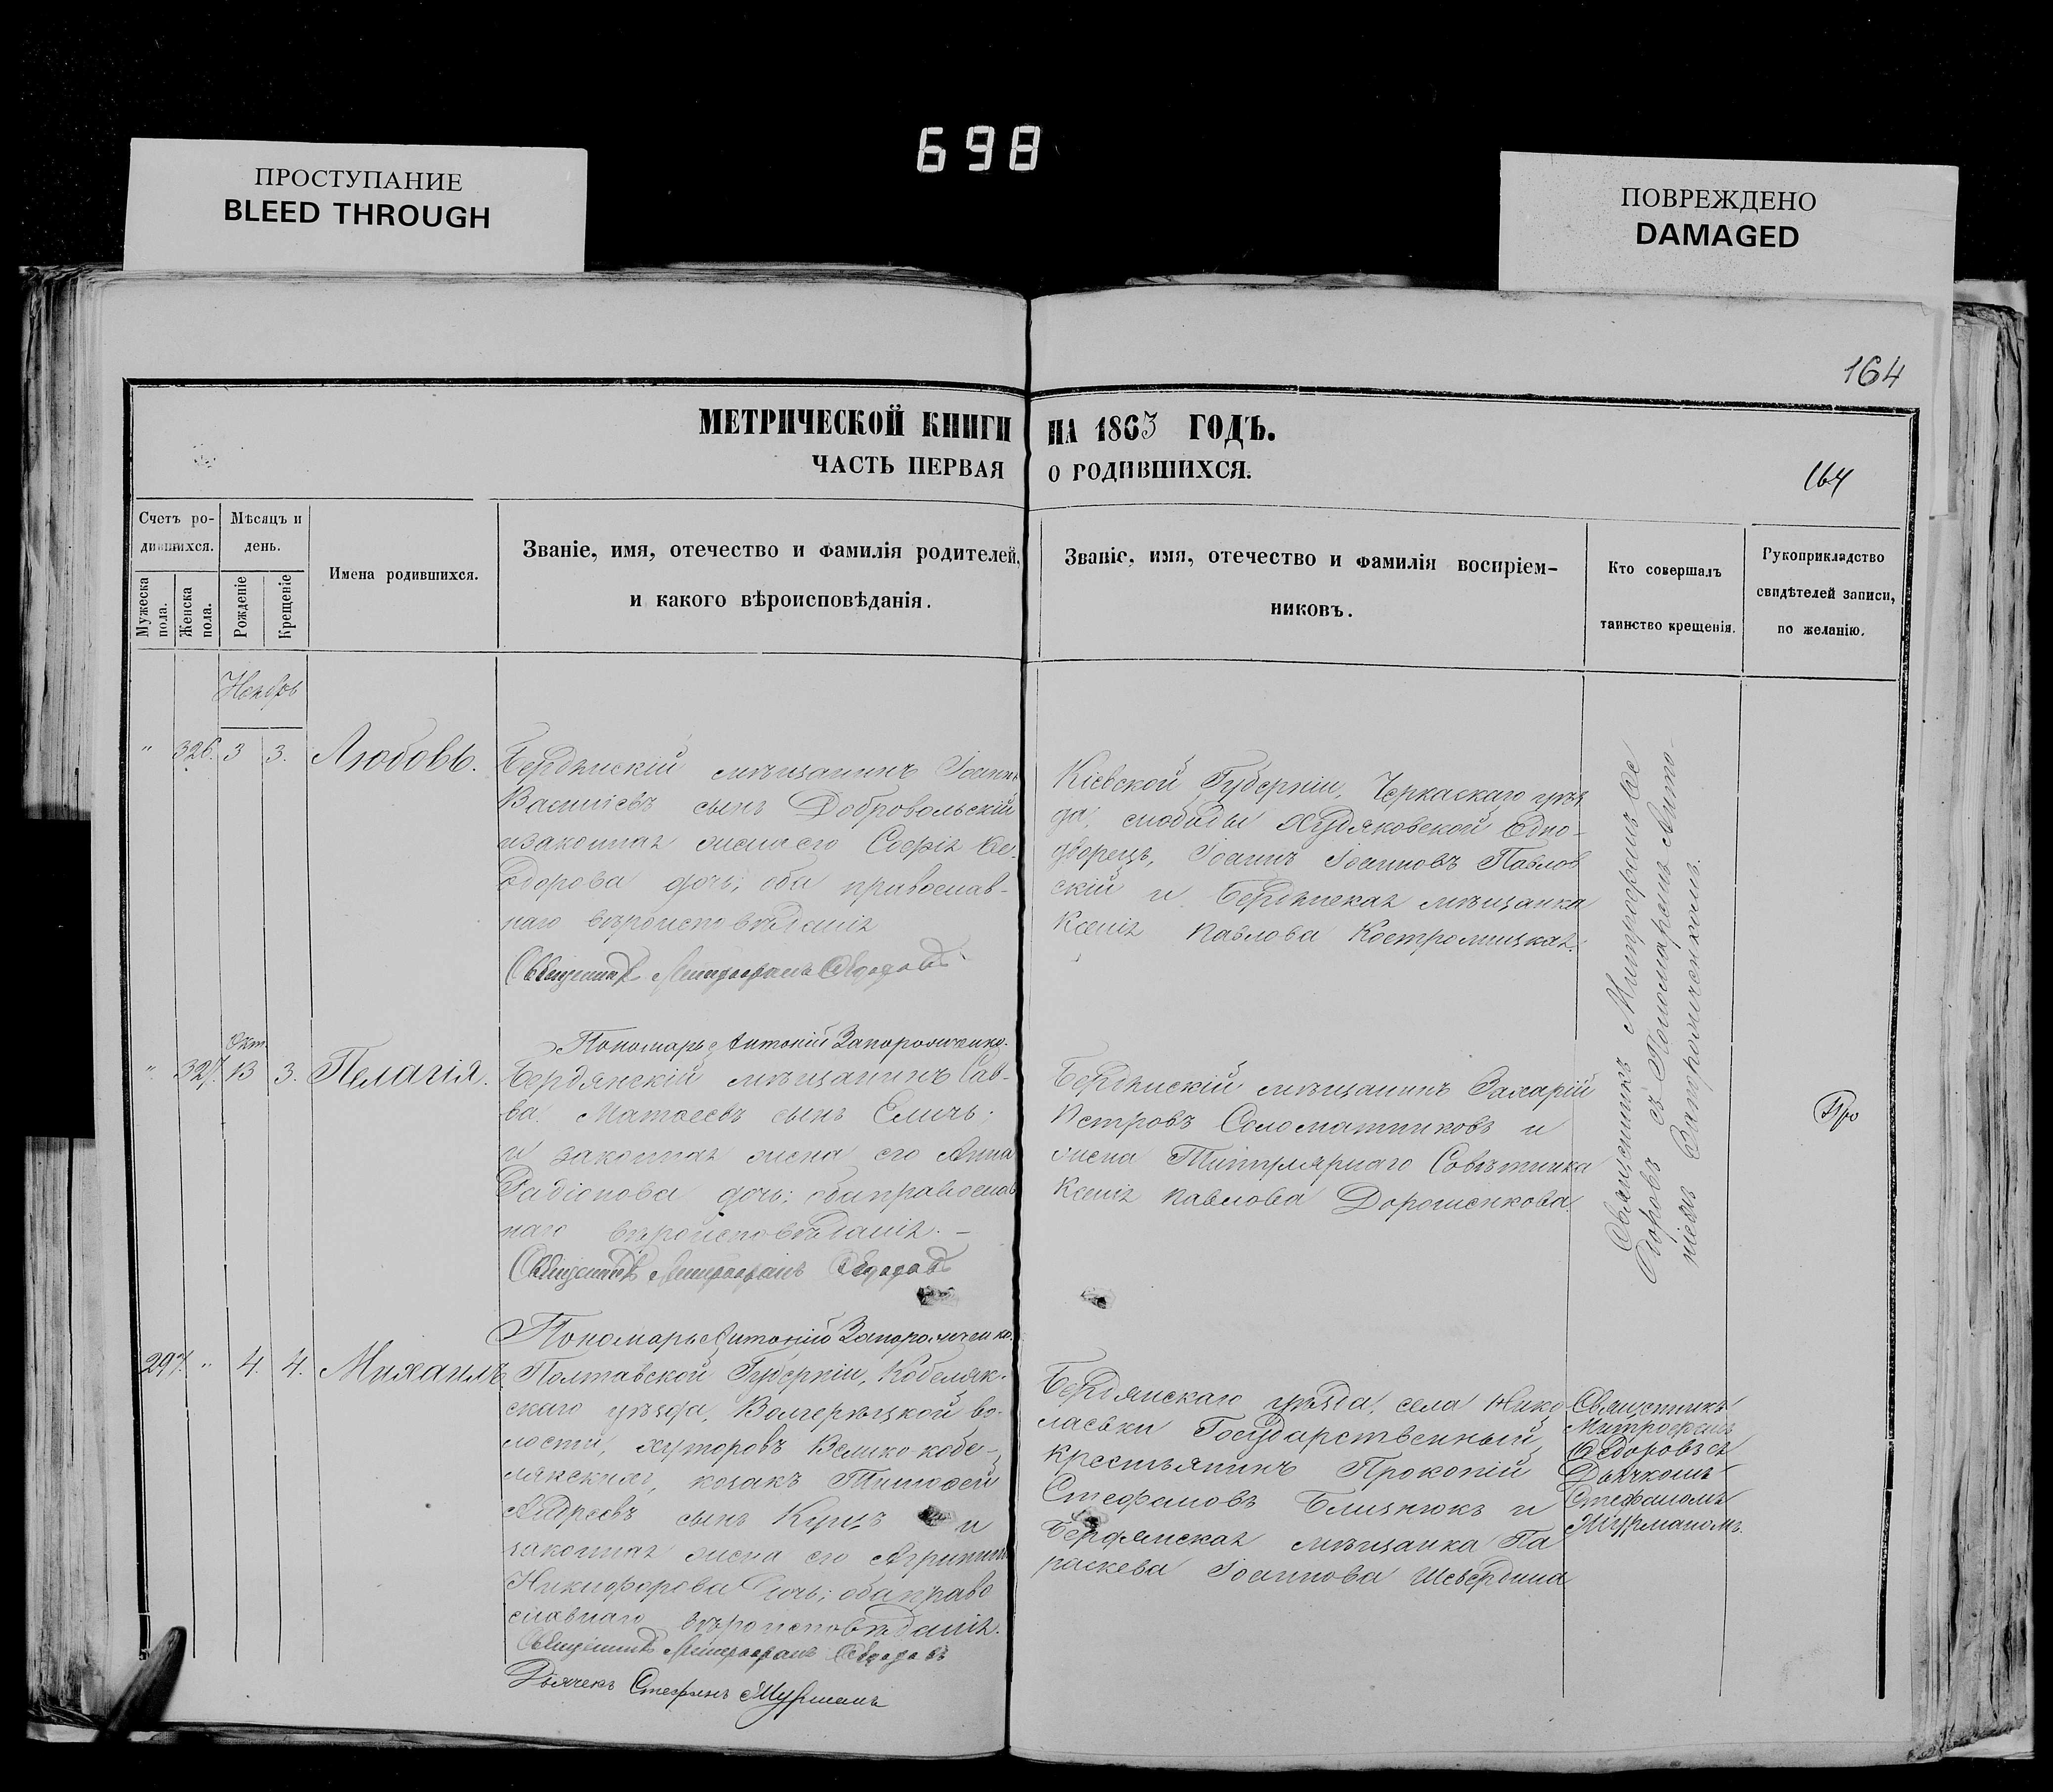 698
ПРОСТУПАНИЕ
BLEED THROUGH
ПОВРЕЖДЕНО
DAMAGED
164
МЕТРИЧЕСКОЙ КНИГИ НА 1863 ГОДЪ.
ЧАСТЬ ПЕРВАЯ О РОДИВШИХСЯ.
164
Счетъ ро-
дившихся.
Мужеска
пола.
Женска
пола.
Мѣсяцъ и
день.
Рожденіе
Крещеніе
Имена родившихся.
Званіе, имя, отечество и фамилія родителей,
и какого вѣроисповѣданія.
Званіе, имя, отечество и фамилія воспріем-
никовъ.
Кто совершалъ
таинство крещенія.
Рукоприкладство
свидѣтелей записи,
по желанію.
Ноябрь
" 326. 3 3. Любовь.
Бердянскій мѣщанинъ Іоаннъ
Васильевъ сынъ Добровольскій
и законная жена его Софія Ѳе-
дорова дочь; оба православ-
наго вѣроисповѣданія
Священникъ Митрофанъ Ѳедоровъ
Пономарь Антоній Запорожченко.
Кіевской Губерніи, Черкаскаго уѣз-
да, слободы Худяковской Одно-
дворецъ, Іоаннъ Іоанновъ Павлов
скій и Бердянская мѣщанка
Ксенія Павлова Костромицкая.
Священникъ Митрофанъ Ѳе
доровъ съ Пономаремъ Анто-
ніемъ Запорожченкомъ.
" 327. Окт. 13 3. Пелагія.
Бердянскій мѣщанинъ Сав-
ва Матѳеевъ сынъ Еличъ;
и законная жена его Анна
Радіонова дочь; оба православ
наго вѣроисповѣданія. –
Священникъ Митрофанъ Ѳедоровъ
Пономарь Антоній Запорожченко.
Бердянскій мѣщанинъ Захарій
Петровъ Соломатниковъ и
жена Титулярнаго Совѣтника
Ксенія Павлова Дорошенкова.
Про
297. " 4. 4. Михаилъ.
Полтавской Губерніи, Кобеляк-
скаго уѣзда, Волчерѣцкой во-
лости, хуторовъ Велико-кобе-
лякскихъ, козакъ Тимоѳей
Андреевъ сынъ Куцъ и
законная жена его Агрипина
Никифорова дочь; оба право
славнаго вѣроисповѣданія.
Священникъ Митрофанъ Ѳедоровъ
Дьячекъ Стефанъ Мурманъ
Бердянскаго уѣзда, села Нико
лаевки Государственный
крестьянинъ Прокопій
Стефановъ Близнюкъ и
Бердянская мѣщанка Па
раскева Іоаннова Шевердина
Священникъ
Митрофанъ
Ѳедоровъ съ
Дьячкомъ
Стефаномъ
Мурманомъ.